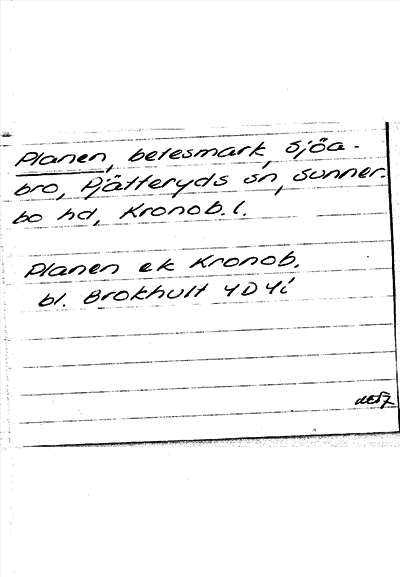 Planen, betesmark, Sjöa-
bro, Pjätteryds sn, Sunner-
bo hd, Kronob. l.
Planen ek Kronob.
bl. Brokhult 4D4i